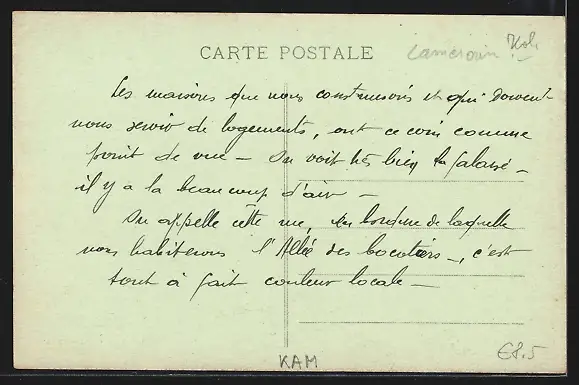 CARTE POSTALE
Cameroun
Les maisons que nous construisons et qui doivent
nous servir de logements, ont ce coin comme
point de vue – On voit très bien la falaise –
il y a là beaucoup d'air –
On appelle cette rue, en bordure de laquelle
nous habiterons l'Allée des Cocotiers –, c'est
tout à fait couleur locale –
KAM
€8.5